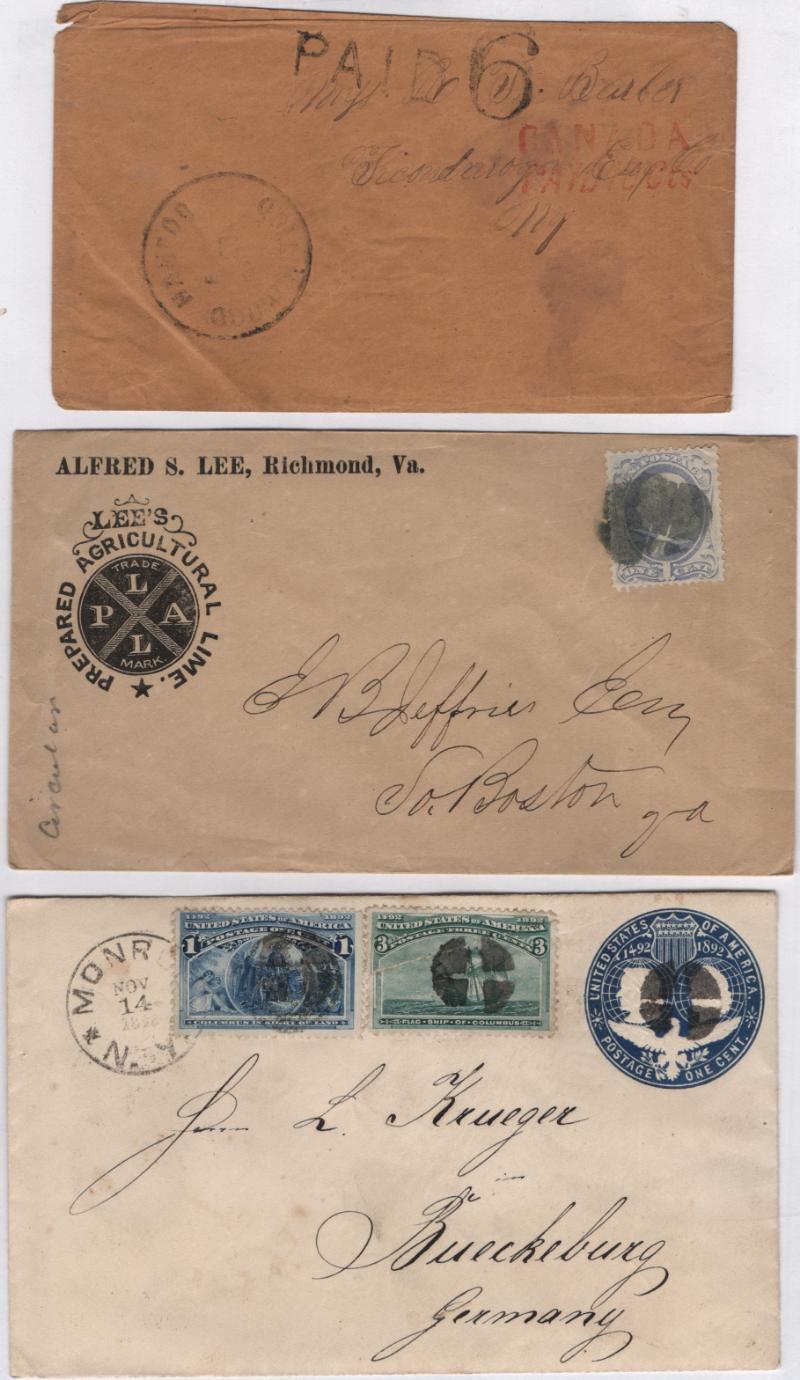 PAID 6
B. Barber
CANADA
Ticonderoga Co
PAID 10 Cts
NY
ALFRED S. LEE, Richmond, Va.
LEE'S
PREPARED AGRICULTURAL LIME.
TRADE
L
P A
L
MARK.
E B Jeffries Esq
So. Boston
Va
Circular
1492 1892
UNITED STATES OF AMERICA
POSTAGE ONE
1 1
COLUMBUS IN SIGHT OF LAND
1492 1892
UNITED STATES OF AMERICA
POSTAGE THREE CENTS
3 3
FLAG-SHIP OF COLUMBUS
UNITED STATES OF AMERICA
1492 1892
POSTAGE ONE CENT.
MONRO
NOV
14
N.Y.
Herrn L. Krueger
Bueckeburg
Germany